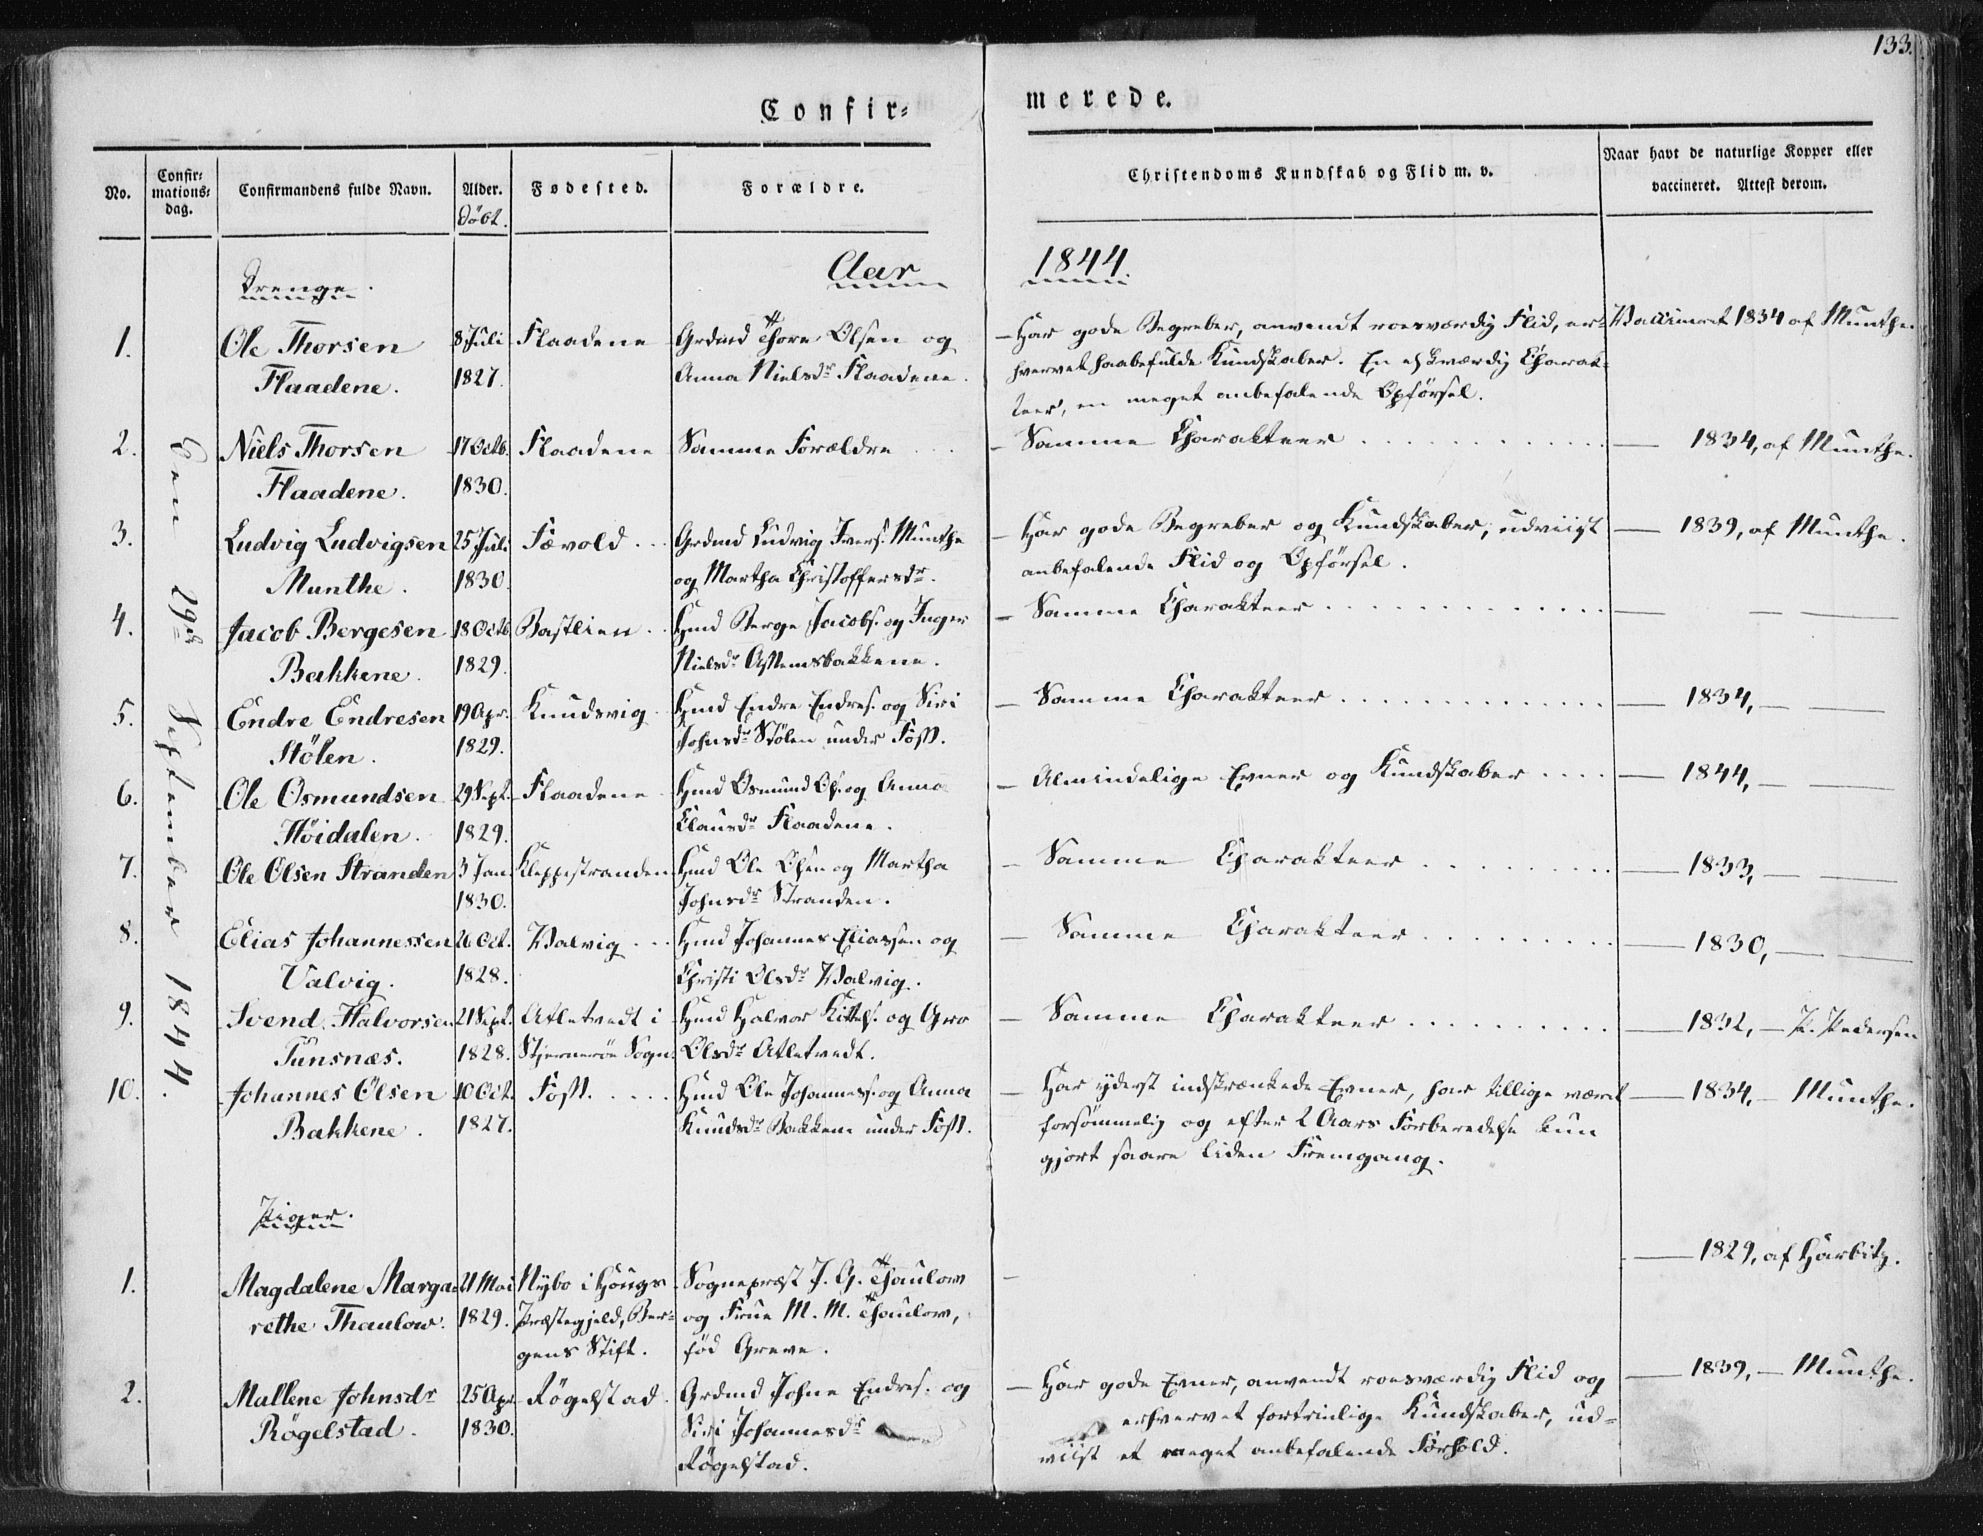 133.
Confir=
merede.
No.
Confir=
mations=
dag.
Confirmandens fulde Navn.
Alder.
døbt.
Fødested.
Forældre.
Christendoms Kundskab og Flid m. v.
Naar havt de naturlige Kopper eller
vaccineret. Attest derom.
Aar
1844.
Drenge.
Den 29de September 1844.
1.
Ole Thorsen
Flaadene.
8 Juli
1827.
Flaadene
Grdmd Thore Olsen og
Anna Nielsdr Flaadene.
- Har gode Begreber, anvendt roesværdig Flid, er=
hvervet haabefulde Kundskaber. En elskværdig Charak=
teer, en meget anbefalende Opførsel.
Vaccineret 1834 af Munthe.
2.
Niels Thorsen
Flaadene.
17 Octb.
1830.
Flaadene
Samme Forældre
- Samme Charakteer
— 1834, af Munthe.
3.
Ludvig Ludvigsen
Munthe.
25 Juli
1830.
Sævold
Grdmd Ludvig Ivers. Munthe
og Martha Christoffersdr.
- Har gode Begreber og Kundskaber, udviist
anbefalende Flid og Opførsel.
— 1839, af Munthe.
4.
Jacob Bergesen
Bakkene.
18 Octb.
1829.
Bastlien
Hmd Berge Jacobs. og Inger
Nielsdr Bakkene.
- Samme Charakteer
— — —
5.
Endre Endresen
Stølen.
19 Apr.
1829.
Knudsvig
Hmd Endre Endres. og Siri
Johnsdr Stølen under Foss.
- Samme Charakteer
— 1834, — —
6.
Ole Osmundsen
Høidalen.
29 Sept.
1829.
Flaadene
Hmd Osmund Ols. og Anna
Clausdr Flaadene.
- Almindelige Evner og Kundskaber
— 1844, — —
7.
Ole Olsen Stranden
3 Jan.
1830.
Kleppestranden
Hmd Ole Olsen og Martha
Johnsdr Stranden.
- Samme Charakteer
— 1833, — —
8.
Elias Johannessen
Valvig.
26 Oct.
1828.
Valvig
Hmd Johannes Eliassen og
Christi Olsdr Valvig.
- Samme Charakteer
— 1830, — —
9.
Svend Halvorsen
Tunsnæs.
21 Sept.
1828.
Atletvedt i
Stjernerøe Sogn.
Hmd Halvor Kittels. og Gro
Olsdr Atletvedt.
- Samme Charakteer
— 1832, — P. Pedersen
10.
Johannes Olsen
Bakkene.
10 Oct.
1827.
Foss.
Hmd Ole Johanness. og Anna
Knudsdr Bakken under Foss.
- Har yderst indskrænkede Evner, har tillige været
forsømmelig og efter 2 Aars Forberedelse kun
gjort saare liden Fremgang.
— 1834, — Munthe.
Piger.
1.
Magdalene Marga=
rethe Thaulow.
21 Mai
1829.
Nybo i Hougs
Præstegjeld, Ber=
gens Stift.
Sognepræst J. G. Thaulow
og Frue M. M. Thaulow,
fød Greve.
-
— 1829, af Harbitz.
2.
Mallene Johnsdr
Røgelstad.
25 Apr.
1830.
Røgelstad.
Grdmd Johne Endres. og
Siri Johannesdr
Røgelstad.
- Har gode Evner, anvendt roesværdig Flid og
erhvervet fortrinlige Kundskaber, ud=
viist et meget anbefalende Forhold.
— 1839, — Munthe.